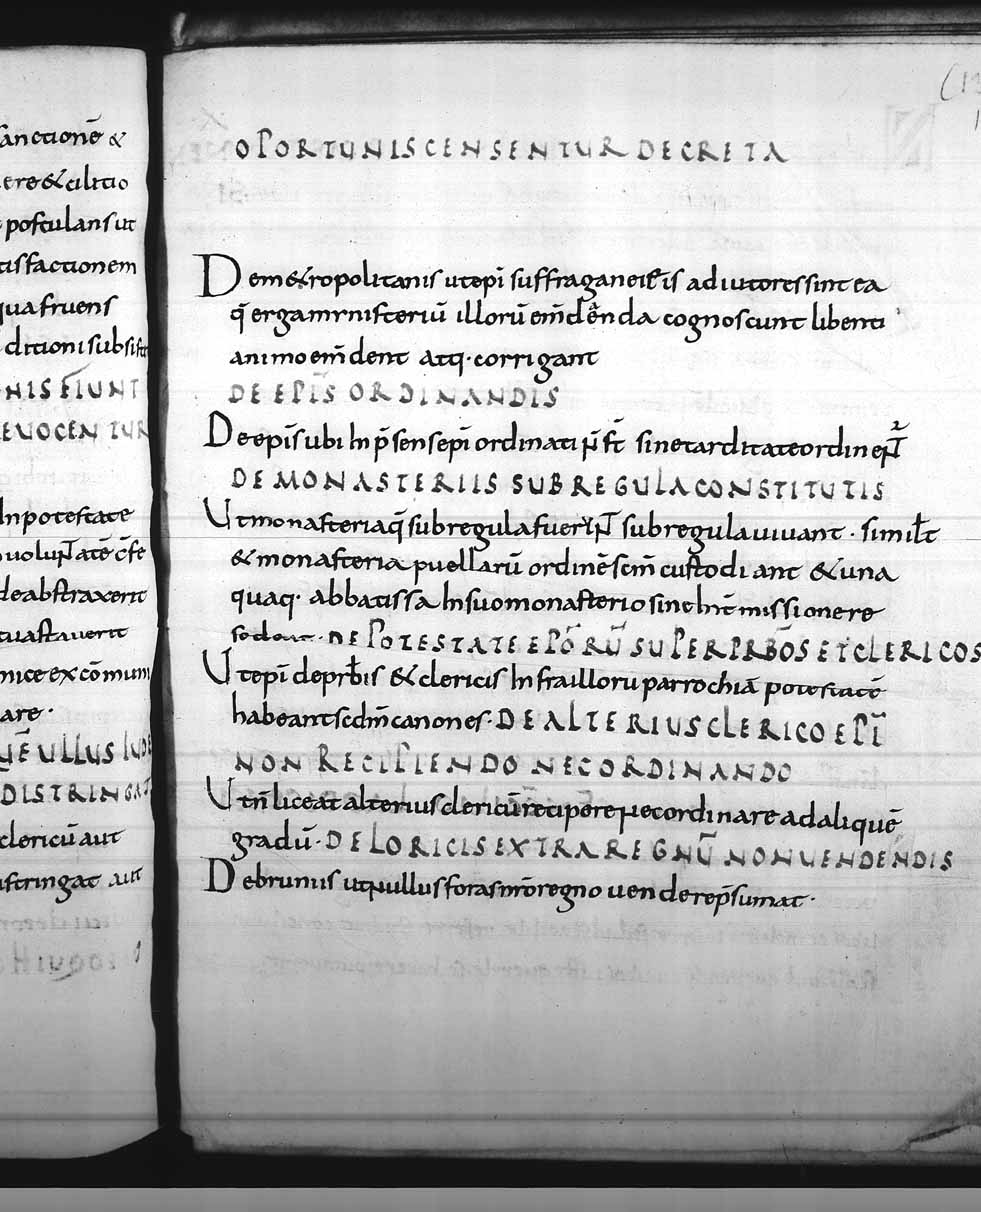 anctionē &
ere & cilitio
postulans ut
tisfactionem
qua fruens
ditioni subsist
NIS FIUNT
EUOCENTUR
In potestate
de abstraxerit
tuastauerit
nice excōmuni
are ·
UĒ ULLUS IUDE
DISTRINGAT
clericū aut
stringat aut
OPORTUNIS CENSENTUR DECRETA
De m&ropolitanis ut epī suffraganei eis adiutores sint ea
q̄ erga ministeriū illorū em̄denda cognoscunt libenti
animo em̄dent atq· corrigant
DE EPĪS ORDINANDIS
De epīs ubi In p̄sens epī ordinati n̄ st̄ sine tarditate ordinent
DE MONASTERIIS SUB REGULA CONSTITUTIS
Ut monasteria q̄ sub regula fuer̄ sub regula uiuant · similt
& monasteria puellarū ordinē scm̄ custodiant & una
quaq· abbatissa In suo monasterio sine Int̄missione re
sedeat · DE POTESTATE EPŌRŪ SUPER PRB̄OS ET CLERICOS
Ut epī de prb̄is & clericis Infra illorū parrochiā potestatē
habeant scdm̄ canones · DE ALTERIUS CLERICO EPĪ
NON RECIPIENDO NEC ORDINANDO
Ut n̄ liceat alterius clericū recipere nec ordinare ad aliquē
gradū · DE LORICIS EXTRA REGNŪ NON UENDENDIS
De brunius ut nullus foras nr̄o regno uendere p̄sumat ·